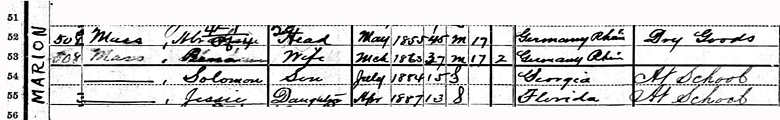 51
52 508 Mass, Abr Head May 1855 45 M 17 Germany Rhin Dry Goods
53 508 Mass, Wife Mch 1863 37 M 17 2 Germany Rhin
54 ———, Solomon Son July 1884 15 S Georgia At School
55 ———, Jessie Daughter Apr 1887 13 S Florida At School
56
MARION